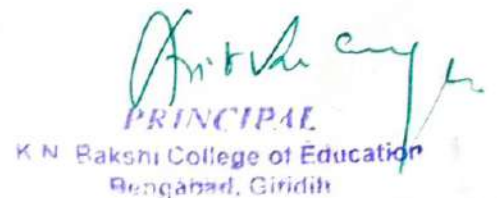 PRINCIPAL
K N Bakshi College of Education
Bengabad, Giridih